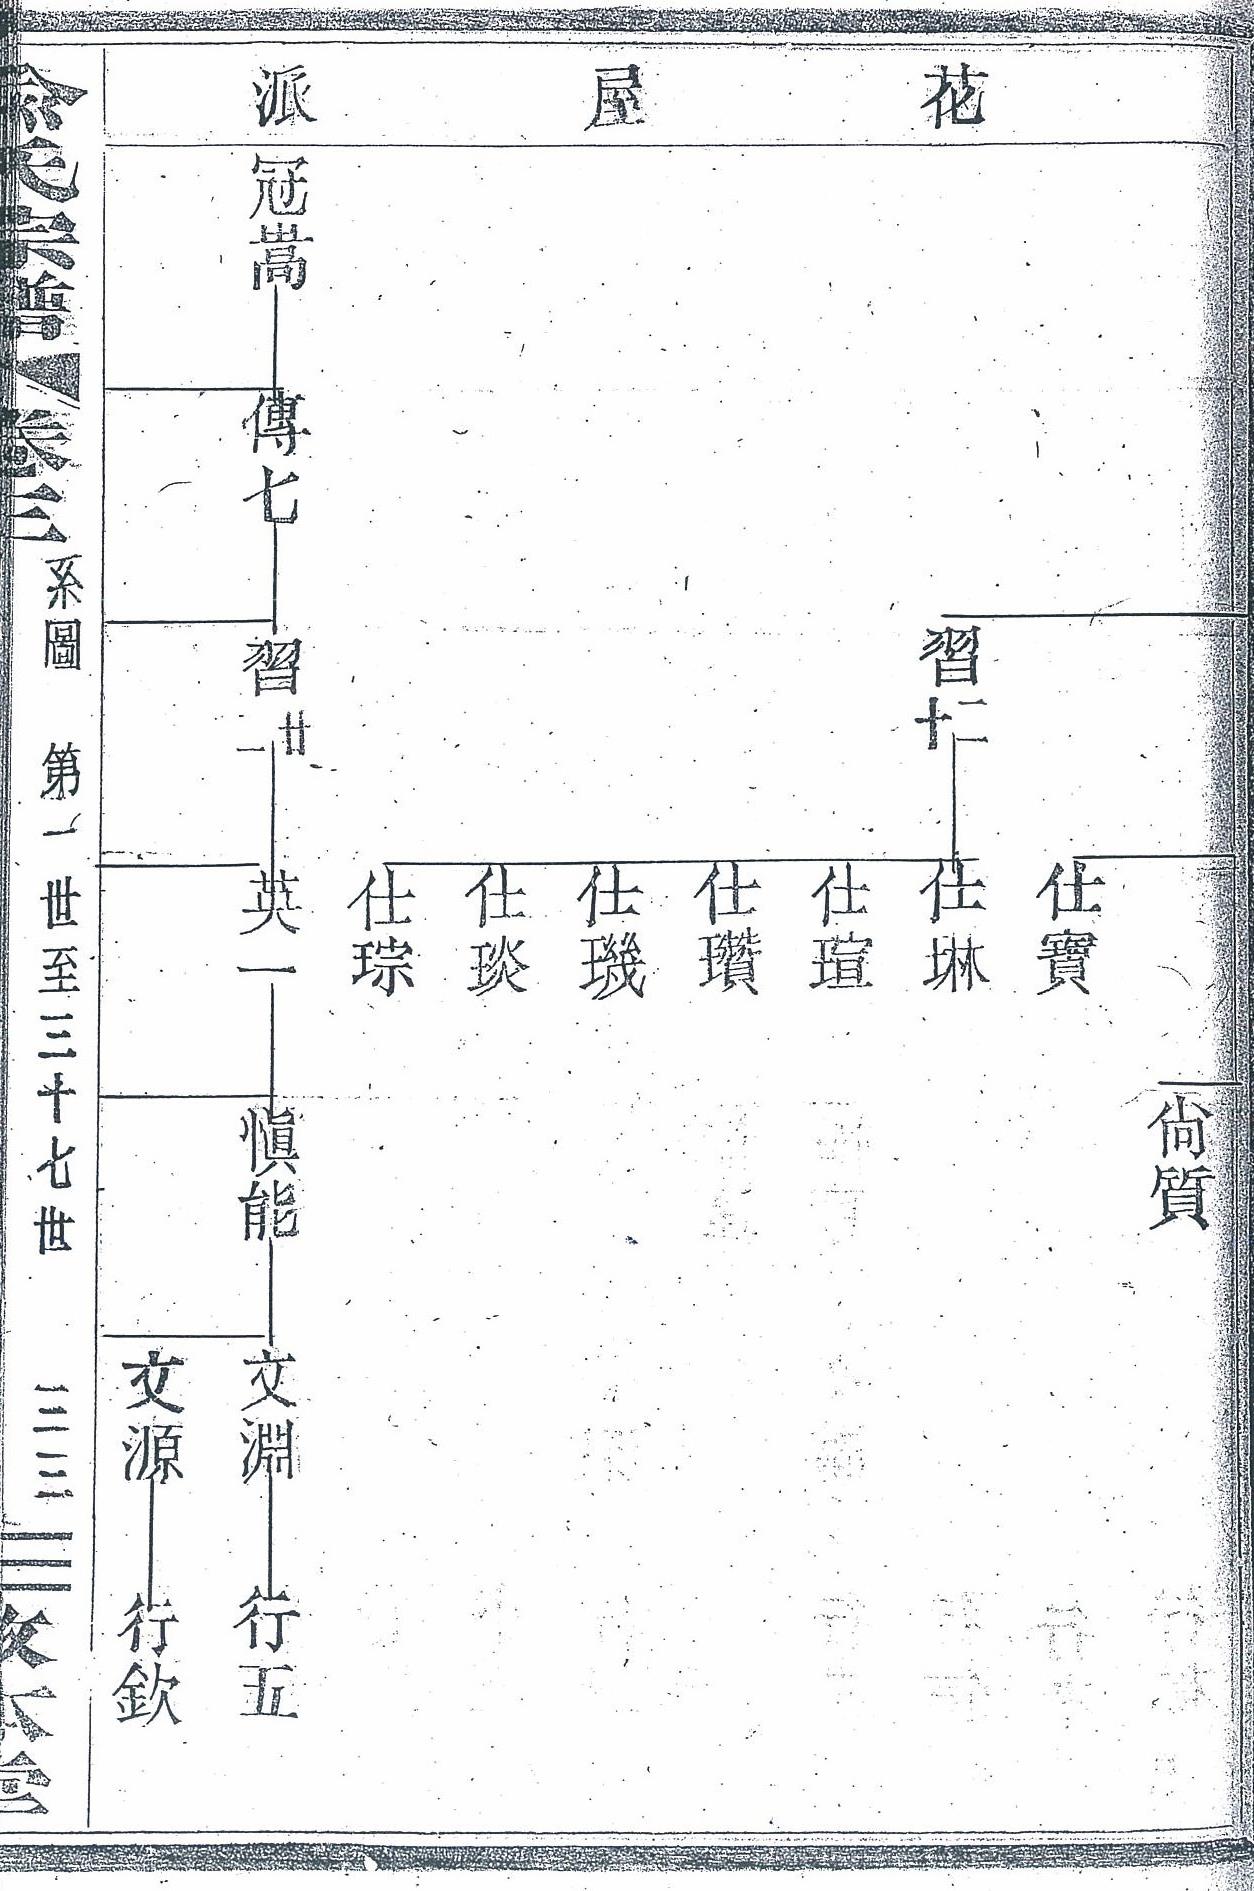 花屋派
尚質
仕寶
習十二
仕琳
仕瑄
仕瓚
仕璣
仕琰
仕琮
冠嵩
傳七
習廿二
英一
慎能
文淵
行五
文源
行欽
氏宗譜 卷三 系圖 第一世至三十七世 三二三 敦本堂